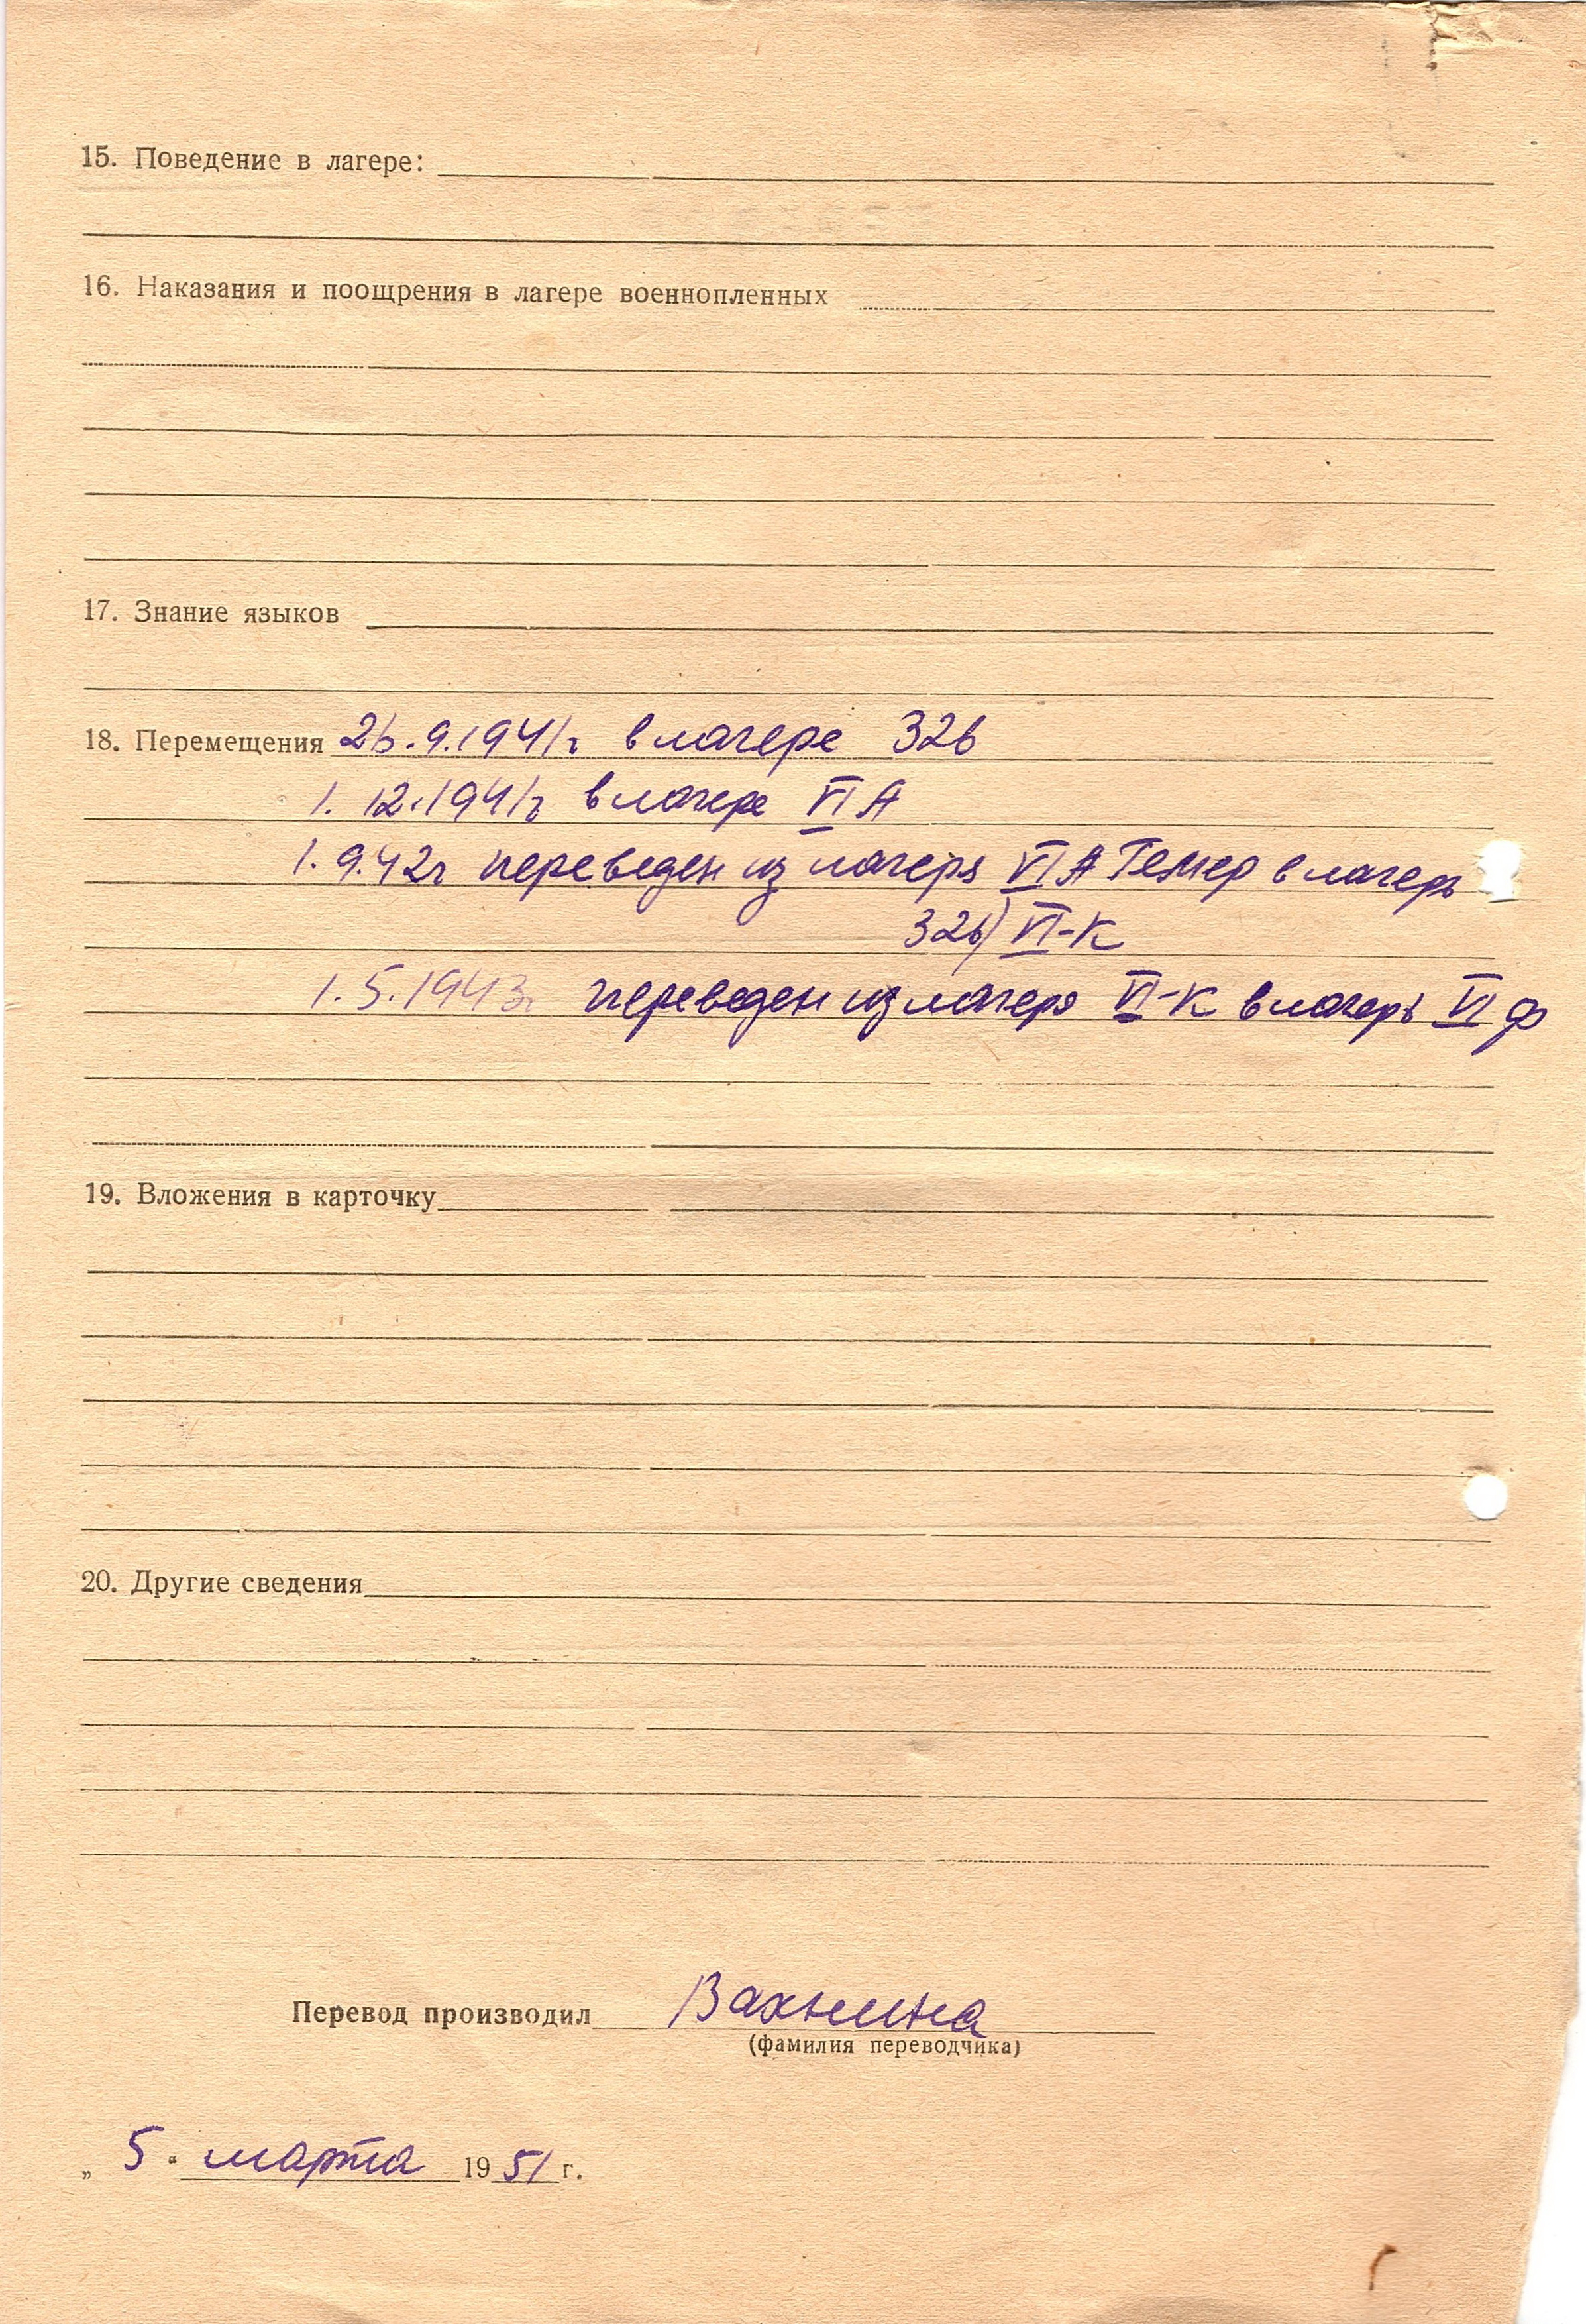 15. Поведение в лагере:
16. Наказания и поощрения в лагере военнопленных
17. Знание языков
18. Перемещения 26.9.1941г в лагере 326
1.12.1941г в лагере VI А
1.9.42г переведен из лагеря VI А Гемер в лагерь
326) VI-К
1.5.1943г переведен из лагеря VI-К в лагерь VI Ф
19. Вложения в карточку
20. Другие сведения
Перевод производил Вахнина
(фамилия переводчика)
„ 5 “ марта 1951 г.